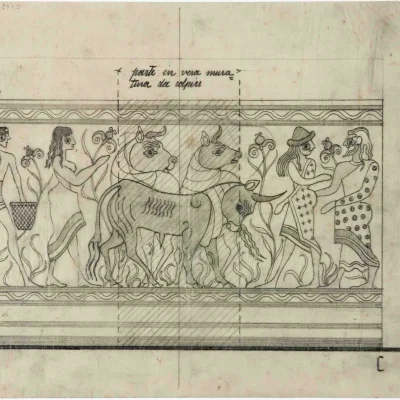 parte in vera mura=
tura da colpire
C